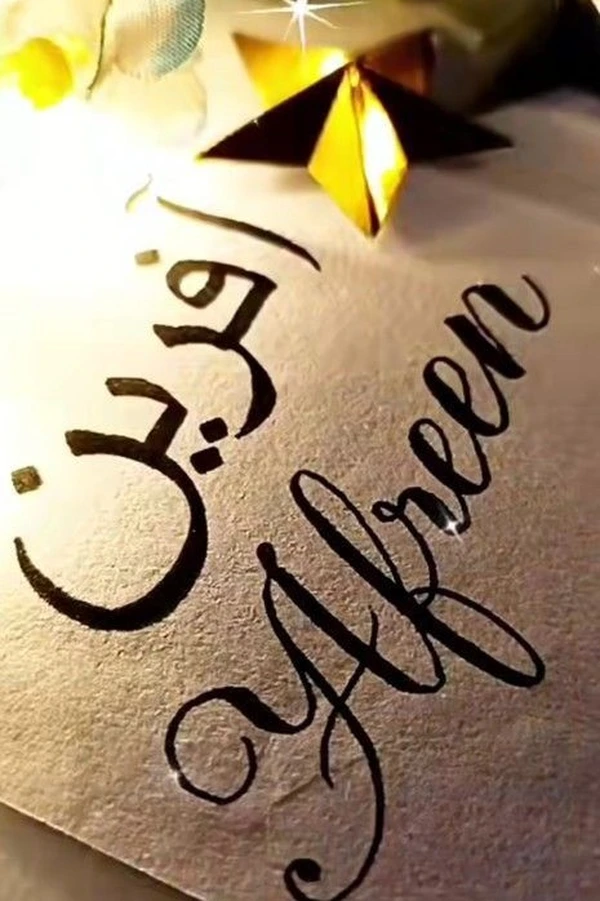 آفرین
Afreen